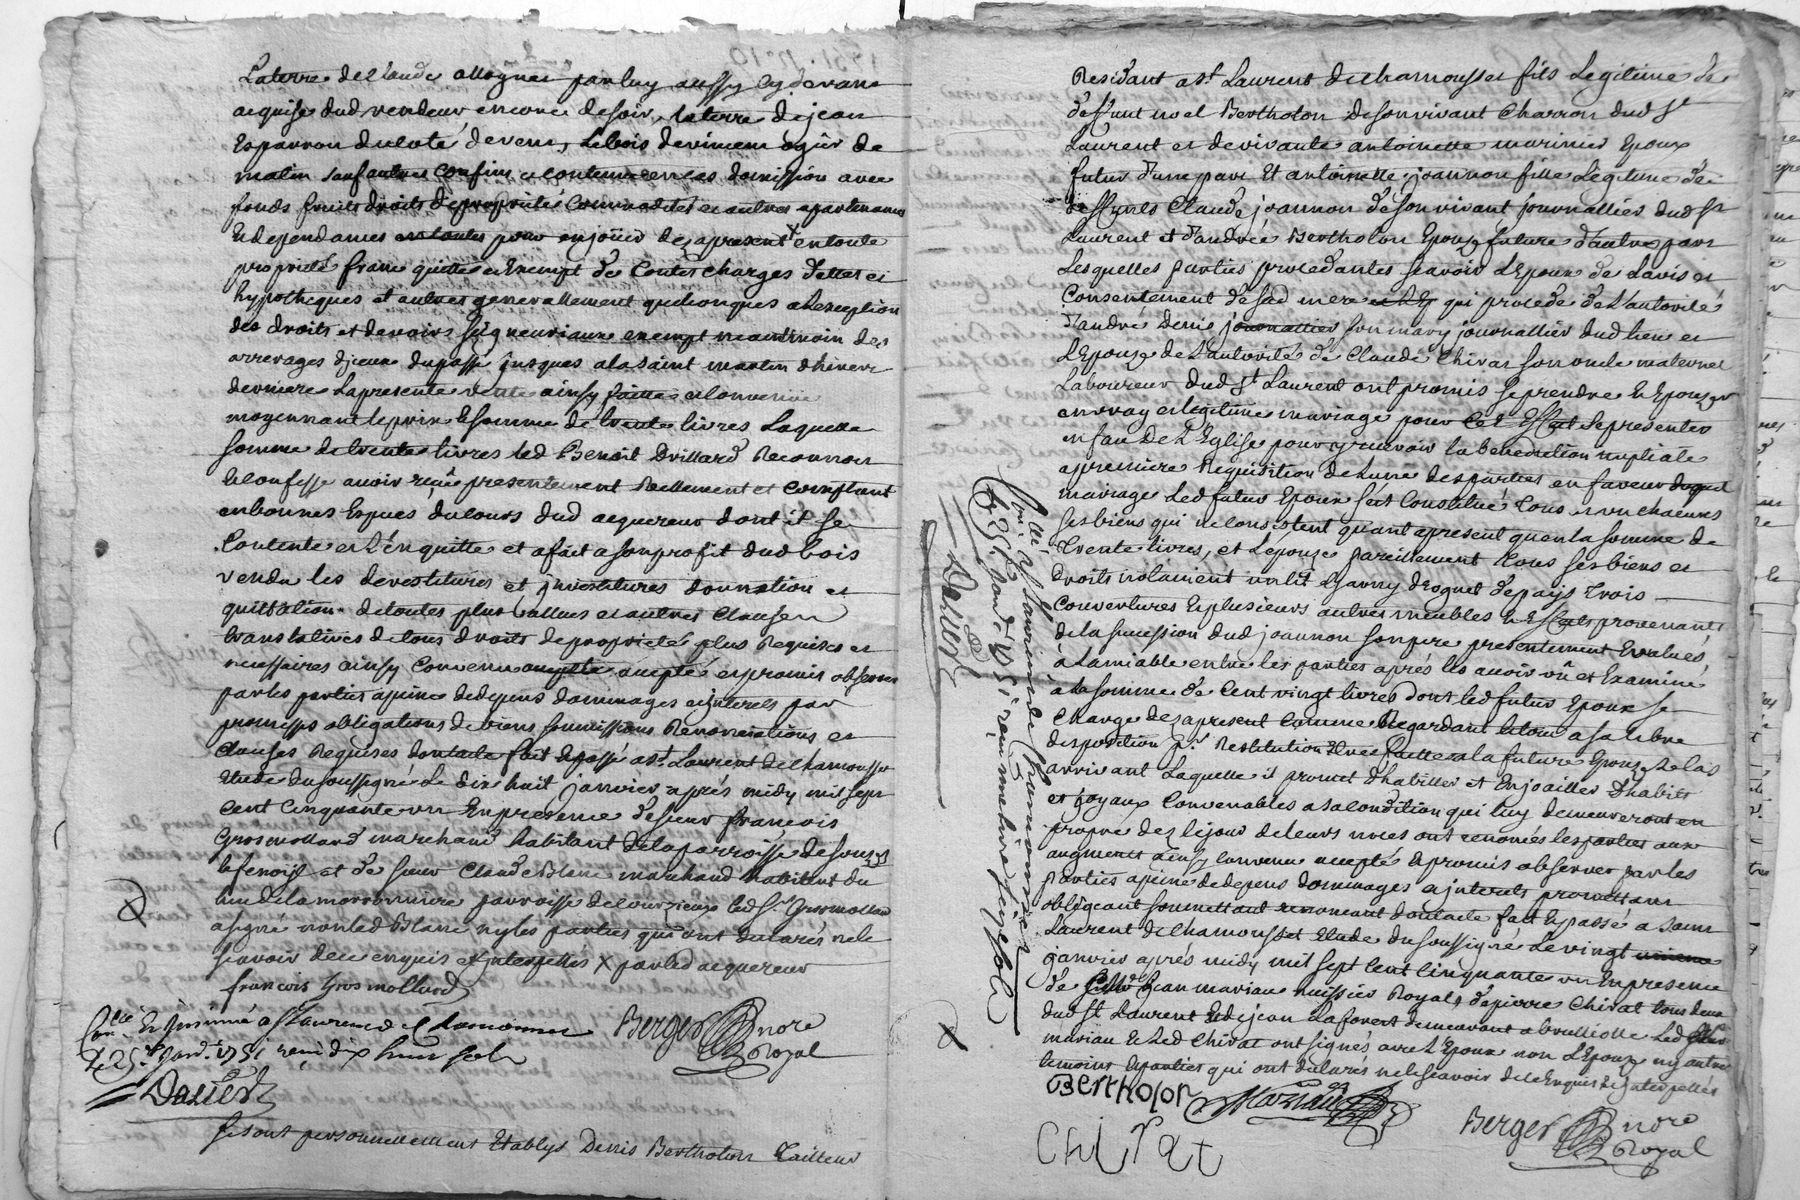 La terre de Claude allognet par luy aussy cy devant
acquise dud vendeur encore de soir, la terre de jean
Esparron du coté de vent, Le bois de vincent ogier de
matin sauf autres confins a contenu en ces domission avec
fonds fruits droits de proprieté Commodités et autres apartenances
Et dependances en toutes pour en joüir des a present X en toute
proprieté franc quitte et Exempt de Toutes charges dettes et
hypotheques et autres generallement quelconques a L'exception
des droits et devoirs seigneuriaux exempt neantmoin des
arrerages d'jceux du passé jusques a la saint martin d'hiver
derniere La presente vente ainsy faitte et Convenüe
moyennant le prix Et somme de trente livres Laquelle
somme de trente livres led Benoit Drillard Reconnoit
Et confesse avoir reçüe presentement Reellement et comptant
en bonnes Especes du cours dud acquereur dont il se
Contente et L'en quitte et a fait a son profit dud bois
vendu les devestitures et jnvestitures donnation et
quittation de toutes plus vallues et autres clauses
translatives de tous droits de proprieté plus Requises et
necessaires ainsy Convenu accepté et promis observer
par les parties a peine de depens dommages et jnterets par
promesses obligations de biens soumissions Renonciations et
clauses Requises dont acte fait Et passé a St Laurent de Chamousset
Etude du soussigné Le dix huit janvier aprés midy mil sept
cent Cinquante un En presence de sieur françois
Grosmollard marchand habitant de la parroisse de souzy
L'argentiere et de sieur Claude Blanc marchand habitant du
lieu de la morronniere parroisse de Courzieux led Sr Grosmollard
a signé non led Blanc ny les parties qui ont declarés ne le
scavoir de ce enquis et jnterpellés X par led acquereur
francois gros mollard
Conllé Et jnsinué a St Laurens de Chamousset
Berger nore
Le 25e janv. 1751 reçu dix huit sols
Royal
Dauer
Se sont personnellement Etablys Denis Bertholon Tailleur
Residant a St Laurent de Chamousset fils Legitime de
deffunt noel Bertholon de son vivant Charron dud St
Laurent et de vivante antoinette marinier Epoux
futur d'une part Et antoinette joannon fille Legitime de
deffunts Claude joannon de son vivant journallier dud St
Laurent et d'andrée Bertholon Epouze future d'autre part
Lesquelles parties procedantes scavoir L'epoux de L'avis et
Consentement de sad mere qui procede de L'autorité
d'andre Denis journallier son mary journallier dud lieu et
L'Epouze de L'autorité de Claude Chirat son oncle maternel
Laboureur dud St Laurent ont promis se prendre Et Epouzer
en vray et legitime mariage pour Cet Effet se presenter
en face de L'Eglise pour y recevoir la benediction nuptiale
a premiere Requisition de L'une des parties en faveur duquel
mariage Led futur Epoux s'est Constitué Tous et un chacuns
ses biens qui ne consistent quant a present qu'en la somme de
Trente livres, et L'épouze pareillement tous ses biens et
Droits notament un lit garny de oguet de pays Trois
Couvertures Et plusieurs autres meubles Et Effets provenants
de la succession dud joannon son pere presentement Evalués
a L'amiable entre les parties aprés les avoir vû et Examiné
a la somme de Cent vingt livres dont led futur Epoux se
Charge des a present Comme Regardant le tout a sa libre
disposition pr Restitution Etre faitte a la future Epouze le cas
arrivant Laquelle il promet d'habiller et Enjoailler d'habits
et joyaux Convenables a sa condition qui luy demeureront en
propre dez le jour de leurs noces ont renoncés les parties aux
augments ainsy Convenu accepté Et promis observer par les
parties a peine de depens dommages et jnterets promettant
obligeant soumettant renoncant dont acte fait Et passé a saint
Laurent de Chamousset Etude du soussigné Le vingt
janvier aprés midy mil sept cent Cinquante un En presence
de jean mariau huissier Royal, de pierre Chirat tous deux
dud St Laurent Et de jean Laforest demeurant a brulliolle Led
mariau Et Led Chirat ont signés avec L'Epoux non L'Epouze ny autre
temoins Et parties qui ont declarés ne le scavoir de ce Enquis Et jnterpellés
Bertholon Mariau
Chirat
Berger nore
Royal
Conllé Et jnsinué a St Laurent de Chamousset
Le 25e janv. 1751 reçu
Dauer